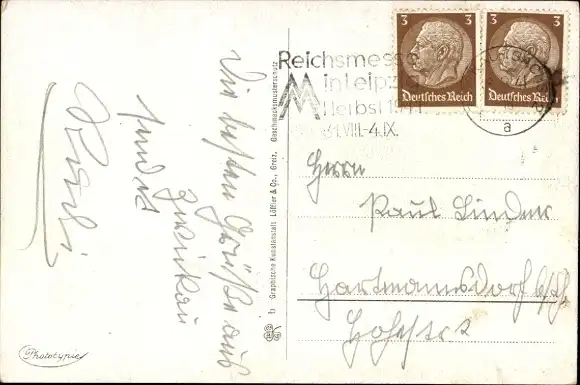 Die besten Grüße aus
Zwickau
sendet
Phototypie
b Graphische Kunstanstalt Löffler & Co., Greiz. Geschmacksmusterschutz
Reichsmesse
in Leipzig
Herbst 1941
31.VIII.-4.IX.
3 3
Deutsches Reich
3 3
Deutsches Reich
a
Herrn
Paul Linder
Hartmannsdorf b/Ch.
Hohestr 2